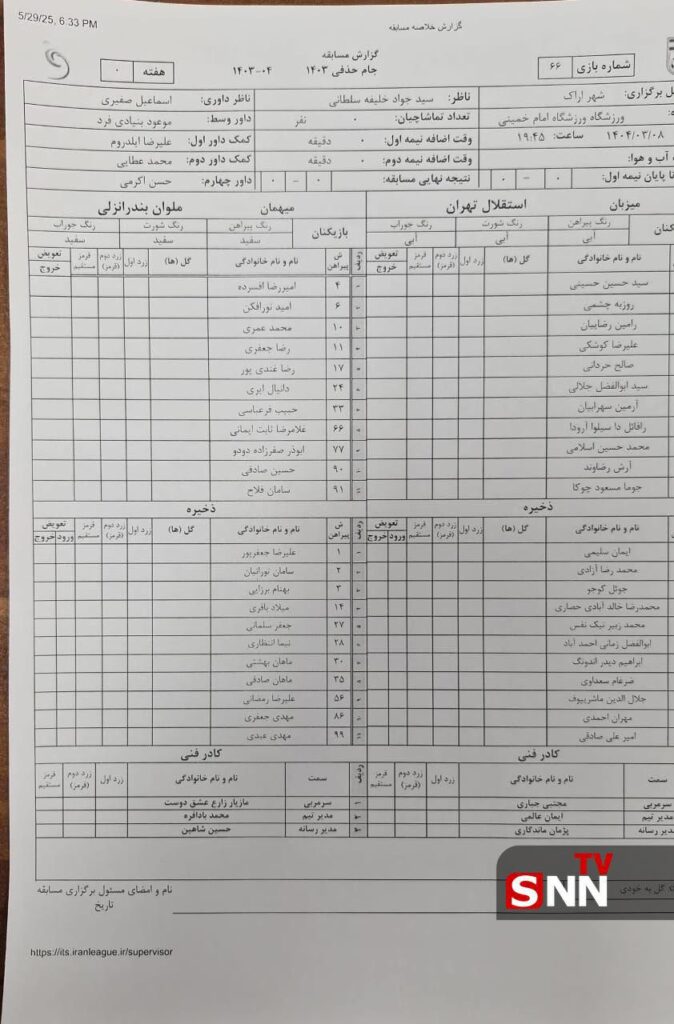 5/29/25, 6:33 PM
گزارش خلاصه مسابقه
گزارش مسابقه
شماره بازی ۶۶
جام حذفی ۱۴۰۳ ۱۴۰۳-۰۴
هفته ۰
ل برگزاری: شهر اراک
ناظر: سید جواد خلیفه سلطانی
ناظر داوری: اسماعیل صفیری
ورزشگاه ورزشگاه امام خمینی
تعداد تماشاچیان: ۰ نفر
داور وسط: موعود بنیادی فرد
۱۴۰۴/۰۳/۰۸ ساعت: ۱۹:۴۵
وقت اضافه نیمه اول: ۰ دقیقه
کمک داور اول: علیرضا ایلدروم
آب و هوا:
وقت اضافه نیمه دوم: ۰ دقیقه
کمک داور دوم: محمد عطایی
تا پایان نیمه اول: ۰ - ۰
نتیجه نهایی مسابقه: ۰ - ۰
داور چهارم: حسن اکرمی
میزبان استقلال تهران
میهمان ملوان بندرانزلی
رنگ پیراهن رنگ شورت رنگ جوراب
آبی آبی آبی
بازیکنان
رنگ پیراهن رنگ شورت رنگ جوراب
سفید سفید سفید
نام و نام خانوادگی گل (ها) زرد اول زرد دوم (قرمز) قرمز مستقیم تعویض خروج
ردیف ش پیراهن نام و نام خانوادگی گل (ها) زرد اول زرد دوم (قرمز) قرمز مستقیم تعویض خروج
سید حسین حسینی
۴ امیررضا افسرده
روزبه چشمی
۶ امید نورافکن
رامین رضاییان
۱۰ محمد عمری
علیرضا کوشکی
۱۱ رضا جعفری
صالح حردانی
۱۷ رضا غندی پور
سید ابوالفضل جلالی
۲۴ دانیال ایری
آرمین سهرابیان
۳۳ حبیب فرعباسی
رافائل دا سیلوا آرودا
۶۶ غلامرضا ثابت ایمانی
محمد حسین اسلامی
۷۷ ابوذر صفرزاده دودو
آرش رضاوند
۹۰ حسین صادقی
جوما مسعود چوکا
۹۱ سامان فلاح
ذخیره
ذخیره
نام و نام خانوادگی گل (ها) زرد اول زرد دوم (قرمز) قرمز مستقیم تعویض ورود خروج
ردیف ش پیراهن نام و نام خانوادگی گل (ها) زرد اول زرد دوم (قرمز) قرمز مستقیم تعویض ورود خروج
ایمان سلیمی
۱ علیرضا جعفرپور
محمد رضا آزادی
۲ سامان نورائیان
جوئل کوجو
۳ بهنام برزایی
محمدرضا خالد آبادی حصاری
۱۴ میلاد باقری
محمد زبیر نیک نفس
۲۷ جعفر سلمانی
ابوالفضل زمانی احمد آباد
۲۸ نیما انتظاری
ابراهیم دیدر اندونگ
۳۰ ماهان بهشتی
ضرغام سعداوی
۳۵ ماهان صادقی
جلال الدین ماشریپوف
۵۶ علیرضا رمضانی
مهران احمدی
۸۶ مهدی جعفری
امیر علی صادقی
۹۹ مهدی عبدی
کادر فنی
کادر فنی
سمت نام و نام خانوادگی زرد اول زرد دوم (قرمز) قرمز مستقیم
ردیف سمت نام و نام خانوادگی زرد اول زرد دوم (قرمز) قرمز مستقیم
سرمربی مجتبی جباری
۱ سرمربی مازیار زارع عشق دوست
مدیر تیم ایمان عالمی
۲ مدیر تیم محمد بادافره
مدیر رسانه پژمان ماندگاری
۳ مدیر رسانه حسین شاهین
گل به خودی
نام و امضای مسئول برگزاری مسابقه
تاریخ
https://its.iranleague.ir/supervisor
SNN TV